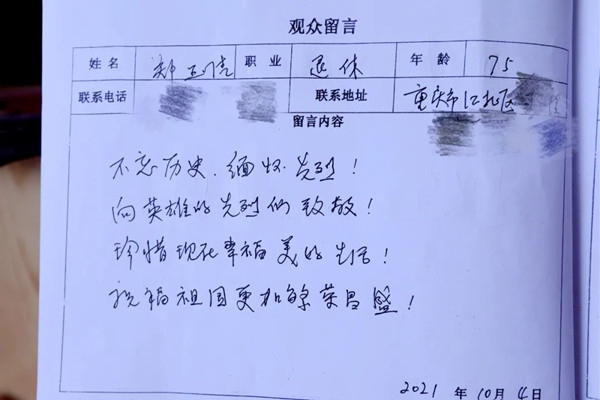 观众留言
姓名 郑 职业 退休 年龄 75
联系电话 联系地址 重庆市江北区
留言内容
不忘历史、缅怀先烈！
向英雄的先烈们致敬！
珍惜现在幸福美好生活！
祝福祖国更加繁荣昌盛！
2021 年 10月 4日